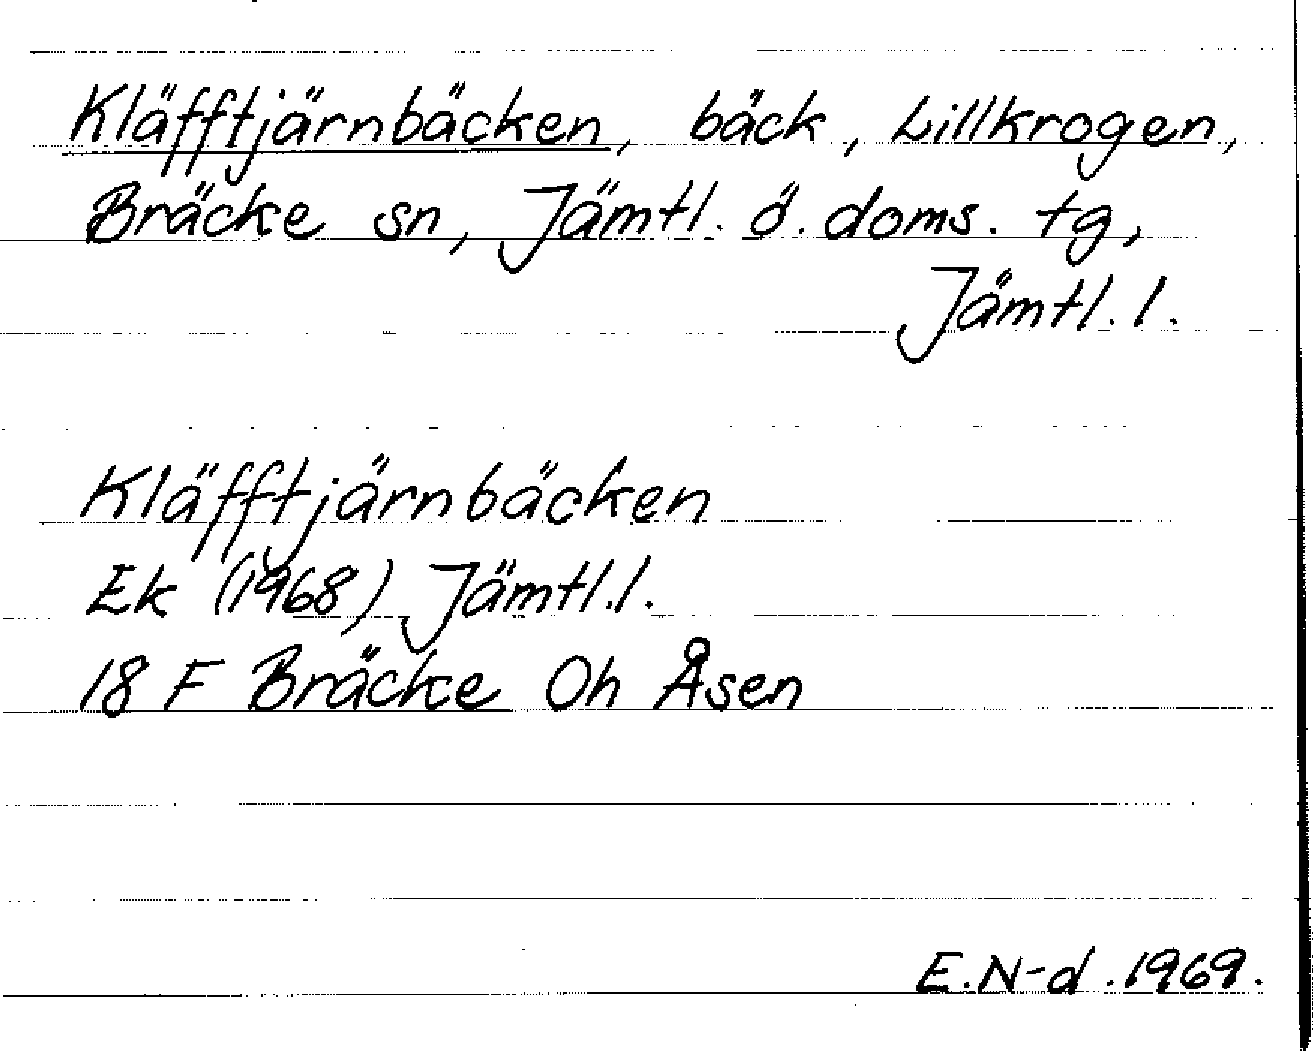 Kläfftjärnbäcken, bäck, Lillkrogen,
Bräcke sn, Jämtl. ö. doms. tg,
Jämtl. l.
Kläfftjärnbäcken
Ek (1968) Jämtl. l.
18 F Bräcke Oh Åsen
E.N-d. 1969.